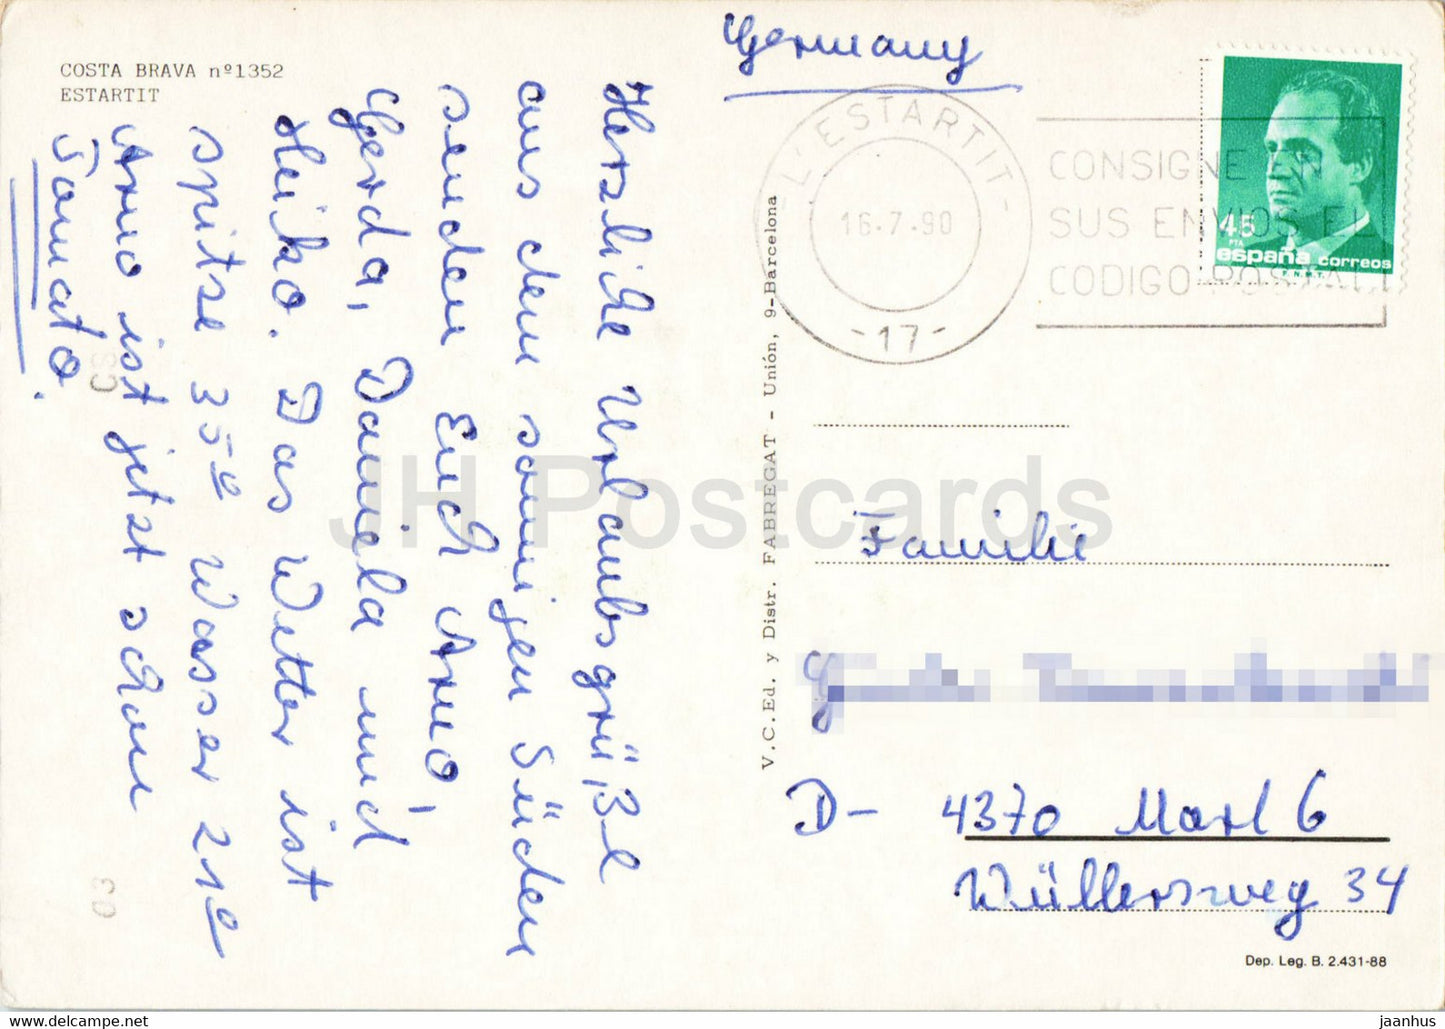 COSTA BRAVA nº1352
ESTARTIT
Herzliche Urlaubsgrüße
aus dem sonnigen Süden
senden Euch Arno,
Gerda, Daniela und
Heiko. Das Wetter ist
spitze 35° Wasser 21°
Arno ist jetzt schon
Tomato.
CS
03
V.C.Ed. y Distr. FABREGAT - Unión, 9-Barcelona
Germany
L'ESTARTIT
16-7-90
-17-
CONSIGNE EN
SUS ENVIOS EL
CODIGO POSTAL
45
PTA
españa correos
F.N.M.T.
Familie
D- 4370 Marl 6
Wüllersweg 34
Dep. Leg. B. 2.431-88
JH Postcards
https://www.delcampe.net
jaanhus